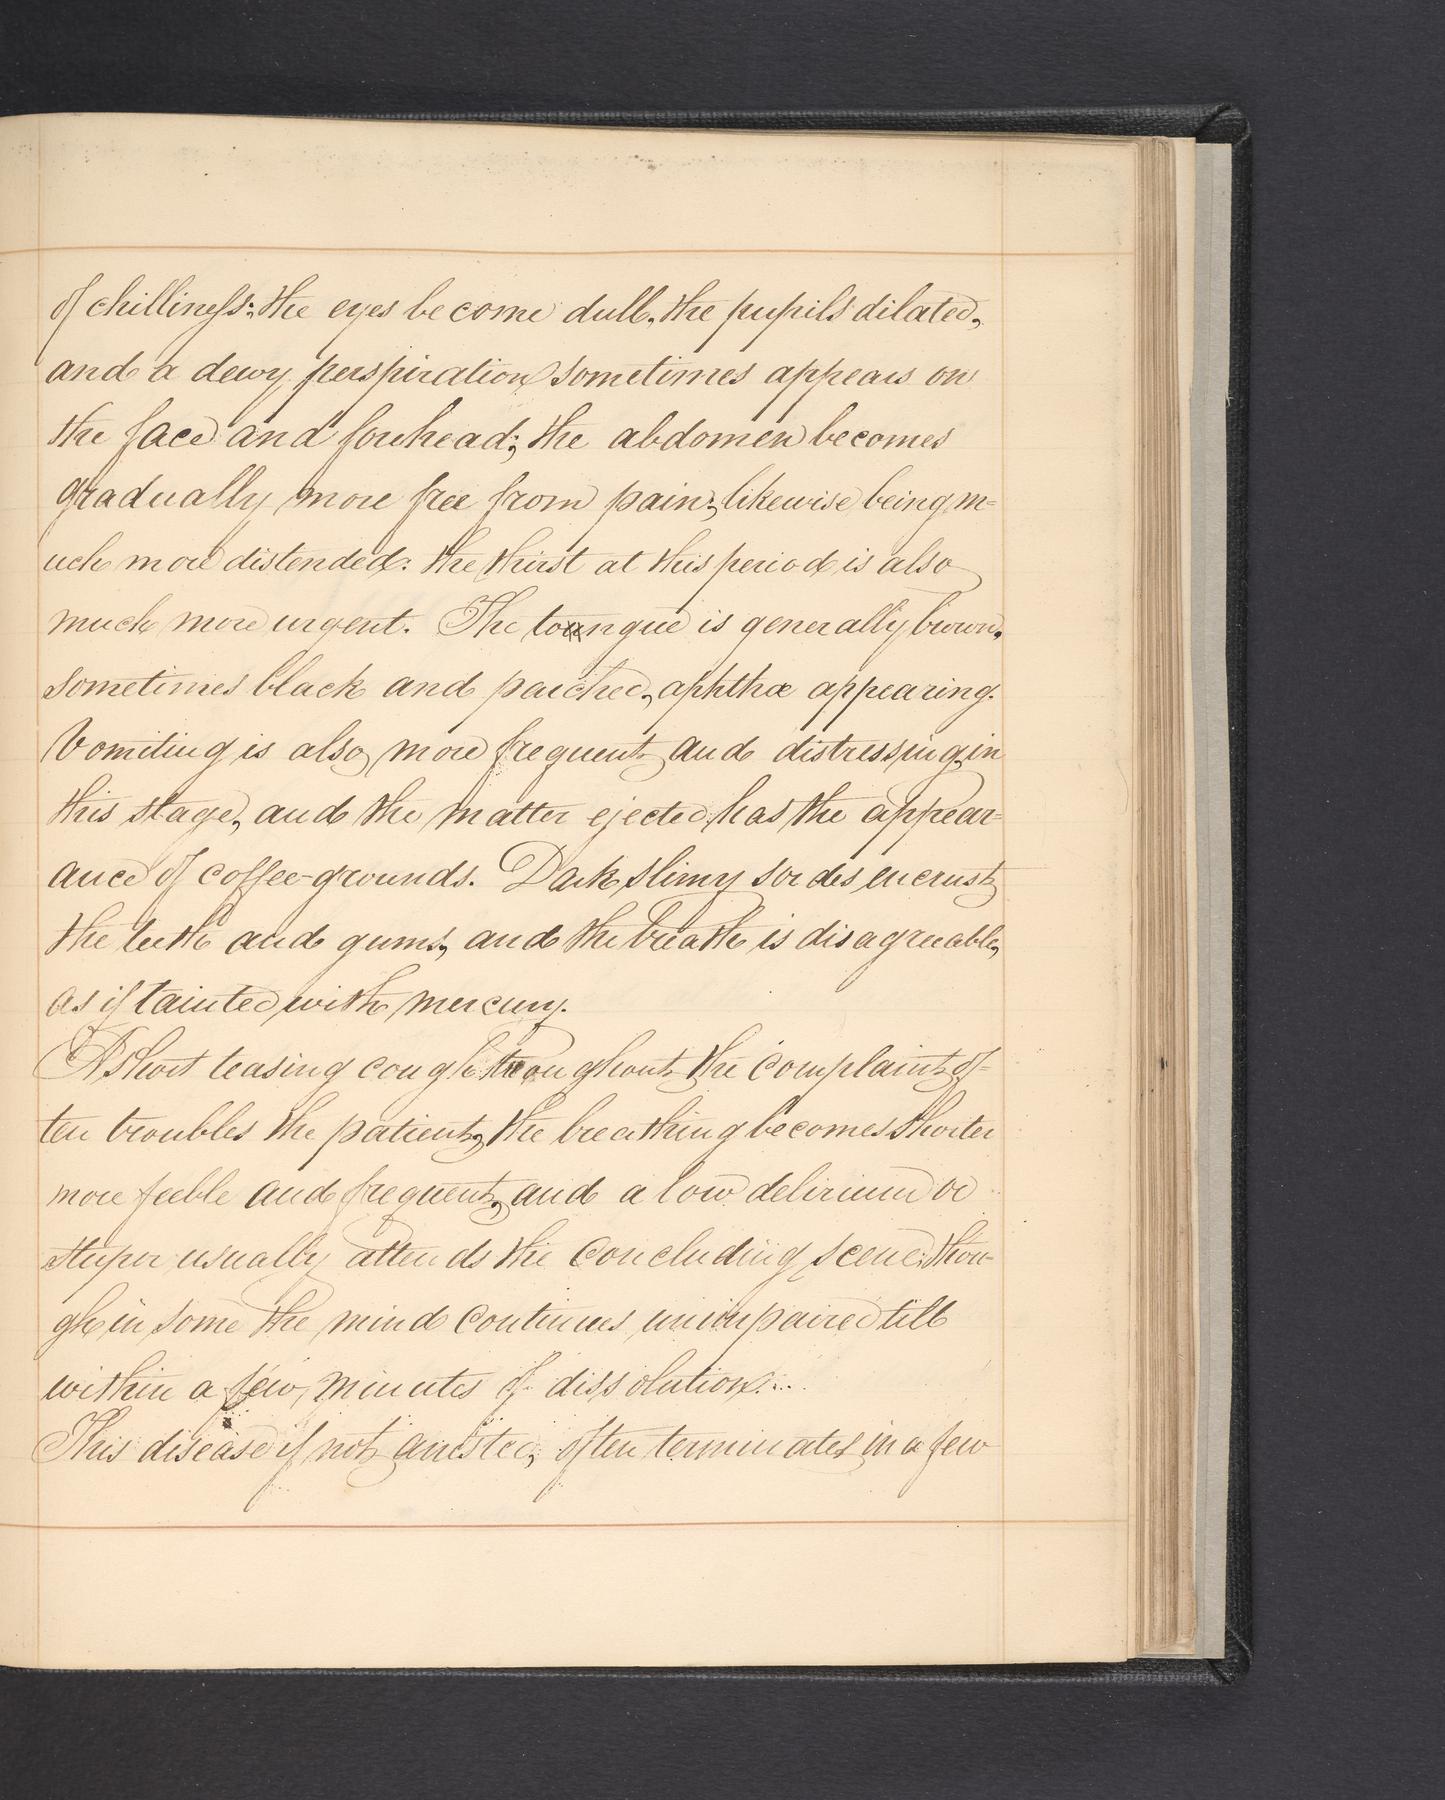 of chilliness: the eyes become dull, the pupils dilated,
and a dewy perspiration sometimes appears on
the face and forehead; the abdomen becomes
gradually more free from pain; likewise being m=
uch more distended: the thirst at this period is also
much more urgent. The toungue is generally brown,
sometimes black and parched, aphthæ appearing.
Vomiting is also more frequent and distressing in
this stage, and the matter ejected has the appear=
ance of coffee-grounds. Dark slimy sordes encrust
the teeth and gums, and the breath is disagreeable,
as if tainted with mercury.
A short teasing cough troughout the complaint of=
ten troubles the patient, the breathing becomes shorter
more feeble and frequent, and a low delirium or
stupor usually attends the concluding scene; thou=
gh in some the mind continues unimpaired till
within a few minutes of dissolution....
This disease if not arrested, often terminates in a few